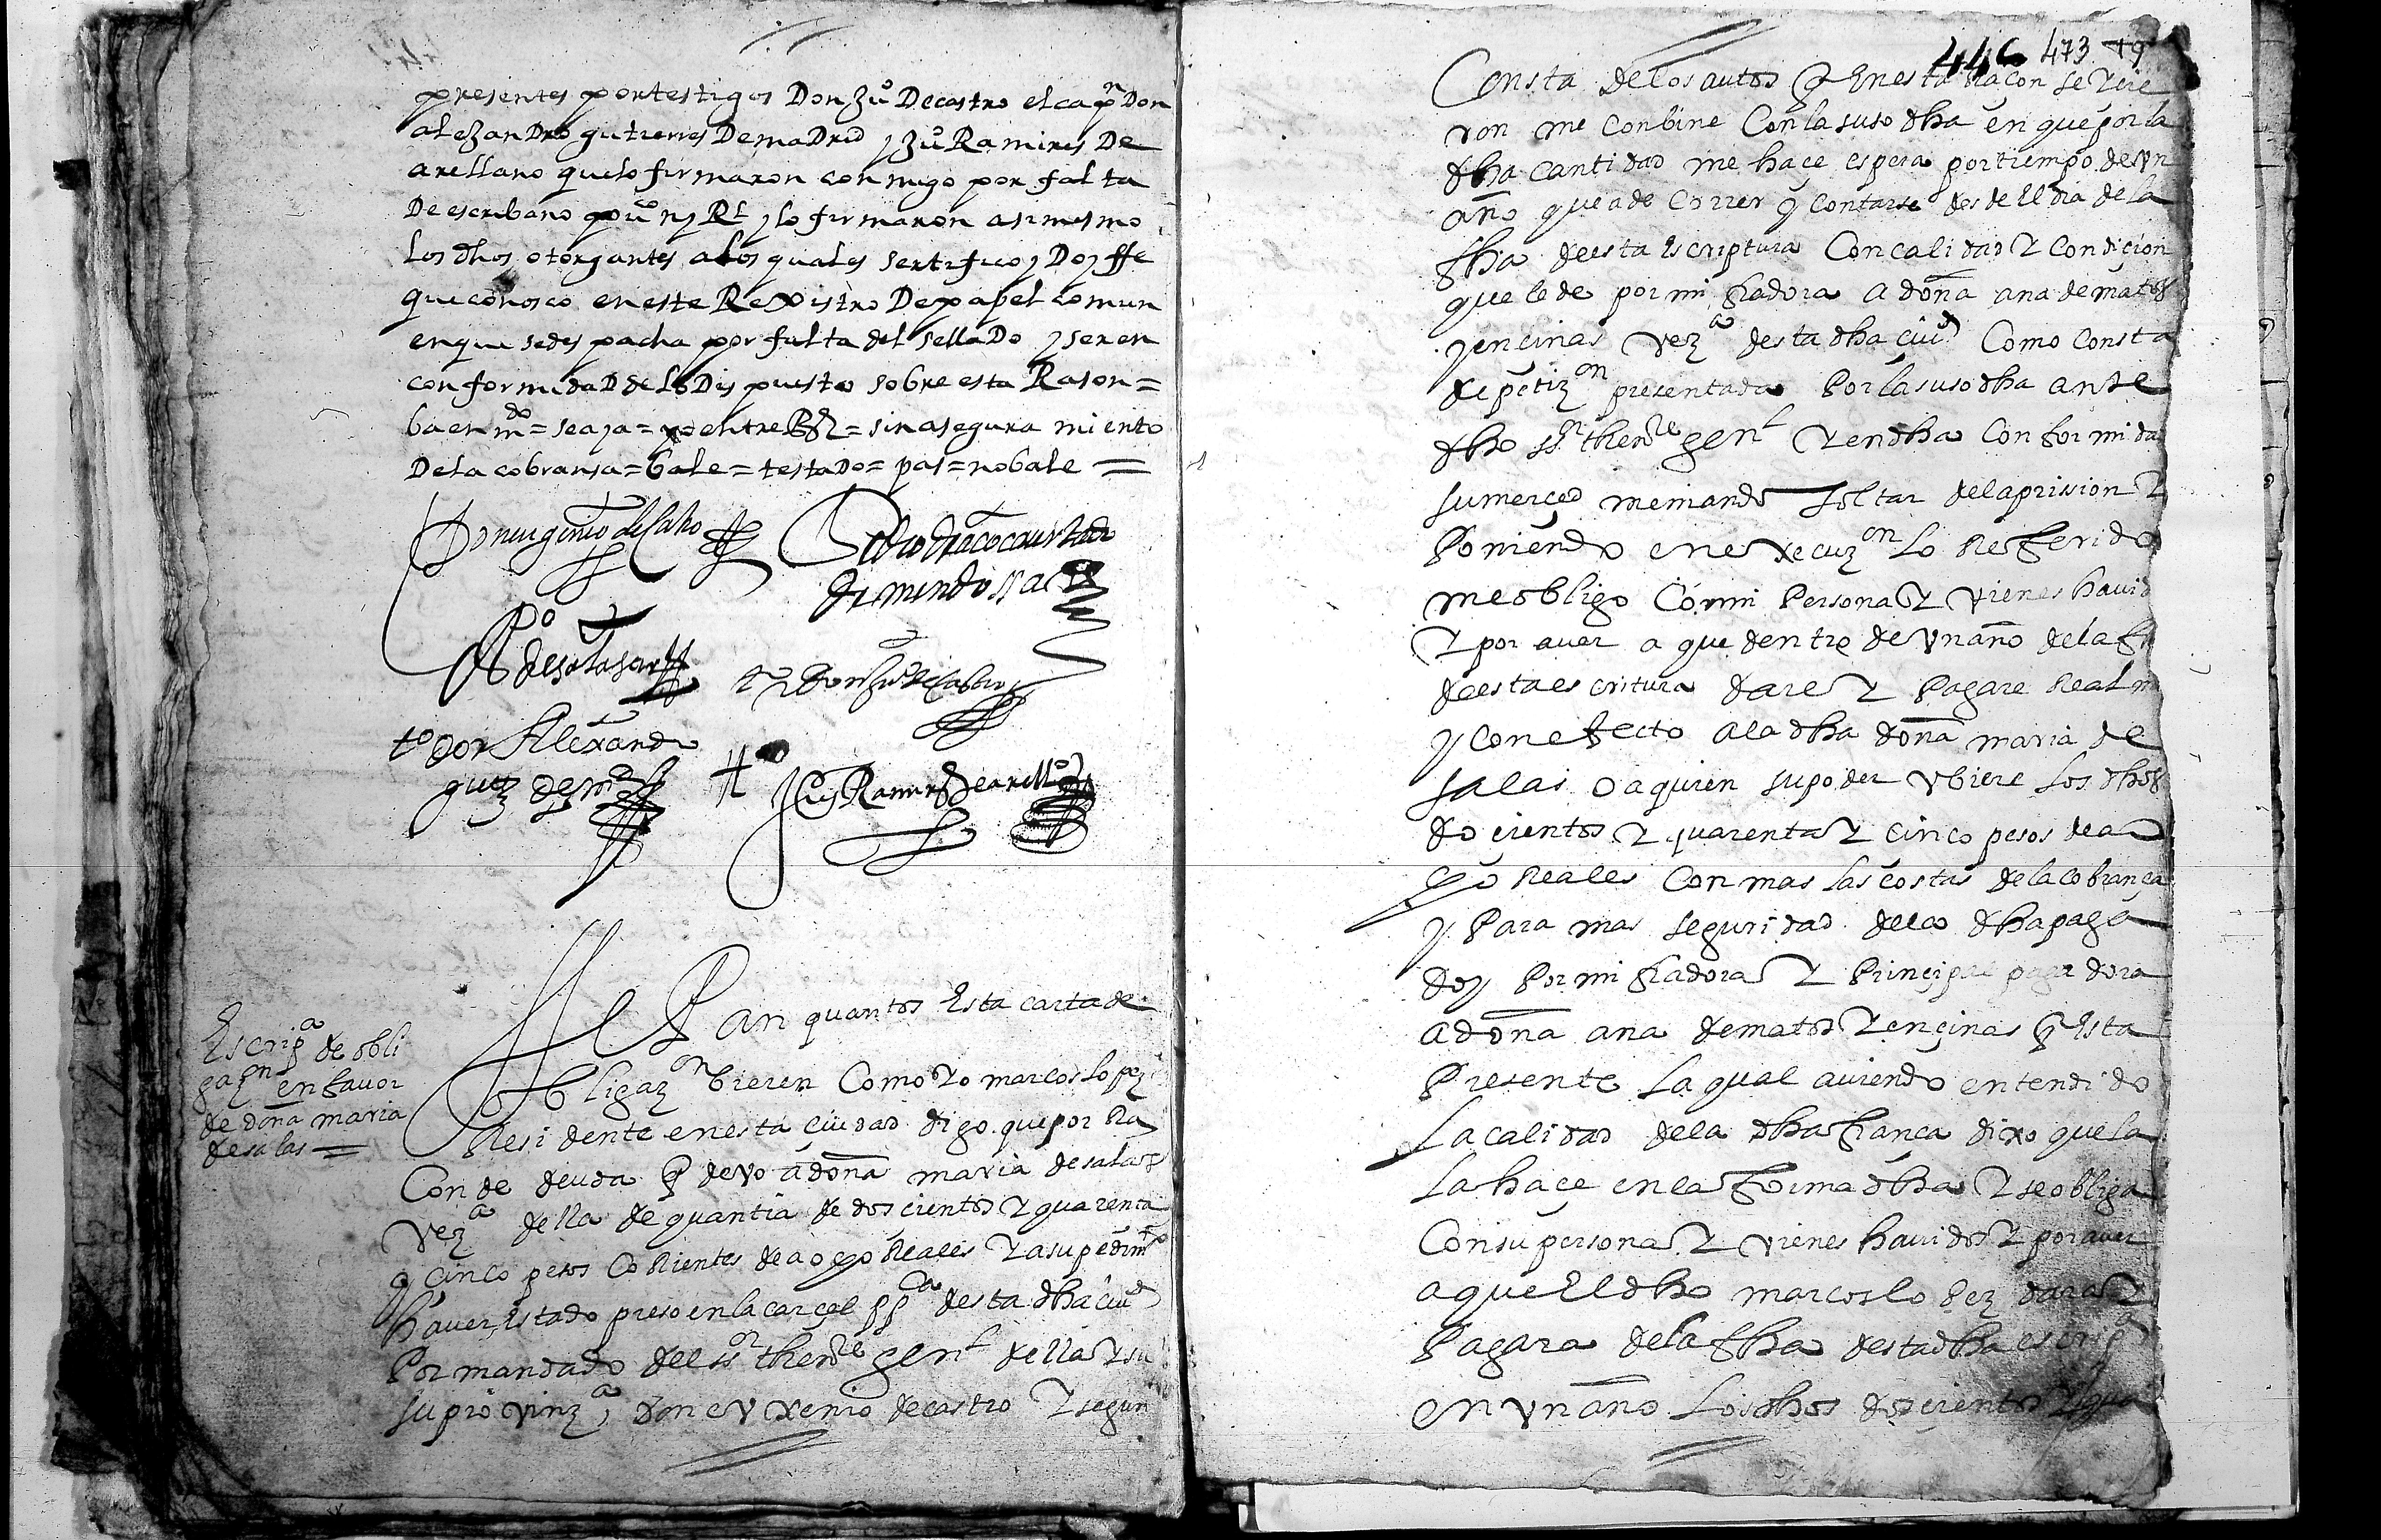 presentes por testigos Don Juº De castro el capⁿ Don
alexandro gutierres De maDrid y Juº Ramires De
arellano que lo firmaron conmigo por falta
De escribano ppuᶜᵒ ny Rˡ y lo firmaron asimesmo
los dhos otorgantes a los quales sertifico y Doy ffe
que conosco en este Rexistro De papel comun
en que se despacha por falta del sellaDo y ser en
conformidaD de lo Dispuesto sobre esta Rason =
ba enmᵈᵒ = seaya = entre Rᵉˢ = sin aseguramiento
De la cobransa = bale = testaDo = pas = no bale =
Don eugenio de Castro
Pedro
de mendossa
Pº
de salasar
tº Don Juº de Castro
tº Don Alexandro
guez de mᵈ
tº
Juº Ramirs de arellº
Escripᵃ de obli
gazᵒⁿ en favor
de doña maria
de salas =
Sepan quantos Esta carta de
obligazᵒⁿ bieren Como Yo marcos lopez
Residente en esta ciudad digo que por Ra
con de deuda q devo a doña maria de salas
Vezᵃ della de quantia de doscientos Y quarenta
y cinco pesos Corrientes de a ocho Reales Y a su pedimᵗᵒ
haver Estado preso en la carçel ppᶜᵃ desta dha ciuᵈ
Por mandado del ssᵒʳ thenᵗᵉ genˡ della Y su
su provinzᵃ, don euxenio de castro Y segun
446 473 79
Consta de los autos q En esta Racon se Ycie
ron me conbine Con la suso dha en que por la
dha cantidad me hace espera por tiempo de vn
año que a de correr y contarse desde El dia de la
fha de esta Escriptura Con calidad Y condicion
que le de por mi fiadora a doña ana de matos
y encinas vezᵃ desta dha ciuᵈ Como Consta
de petizᵒⁿ presentada Por la suso dha ante
dho ssᵒʳ thenᵗᵉ genˡ Y en dha Conformida
su merced me mando soltar de la prission Y
Poniendo en execuzᵒⁿ lo Referido
me obligo Con mi Persona Y vienes havid
Y por aver a que dentro de vn año de la f
de esta escritura dare Y Pagare Realm
y con efecto a la dha doña maria de
salas o a quien su poder vbiere los dhos
docientos Y quarenta Y cinco pesos de a
ocho Reales Con mas las costas de la cobrança
y Para mas seguridad de la dha paga
doy Por mi fiadora Y Principal pagadora
a doña ana de matos Y encinas q Esta
Presente la qual aviendo entendido
la calidad de la dha fiança dixo que la
la haçe en la forma dha Y se obliga
Con su persona Y vienes havidos Y por aver
a que El dho marcos lopez dara Y
Pagara de la fha desta dha escripᵃ
en vn año los dhos doscientos Y qua